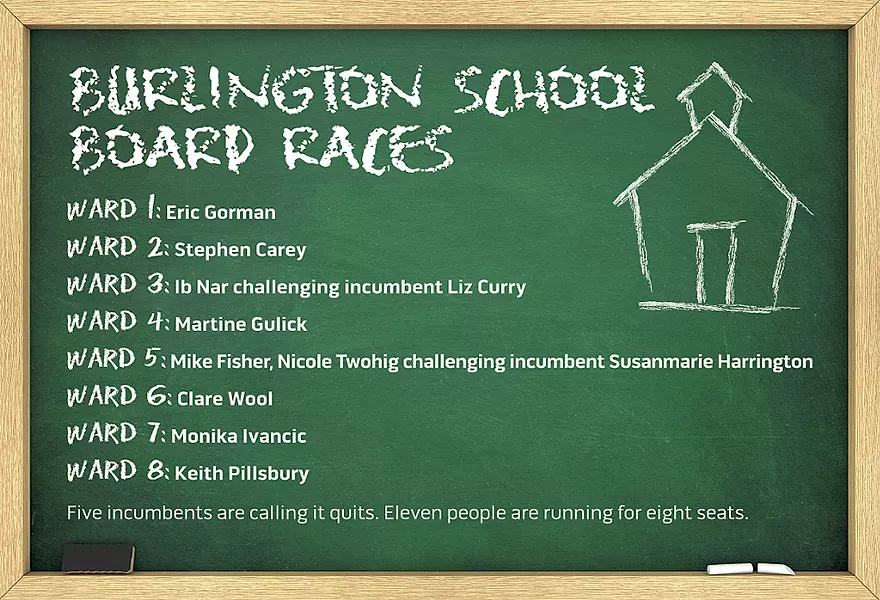 BURLINGTON SCHOOL
BOARD RACES
WARD 1: Eric Gorman
WARD 2: Stephen Carey
WARD 3: Ib Nar challenging incumbent Liz Curry
WARD 4: Martine Gulick
WARD 5: Mike Fisher, Nicole Twohig challenging incumbent Susanmarie Harrington
WARD 6: Clare Wool
WARD 7: Monika Ivancic
WARD 8: Keith Pillsbury
Five incumbents are calling it quits. Eleven people are running for eight seats.